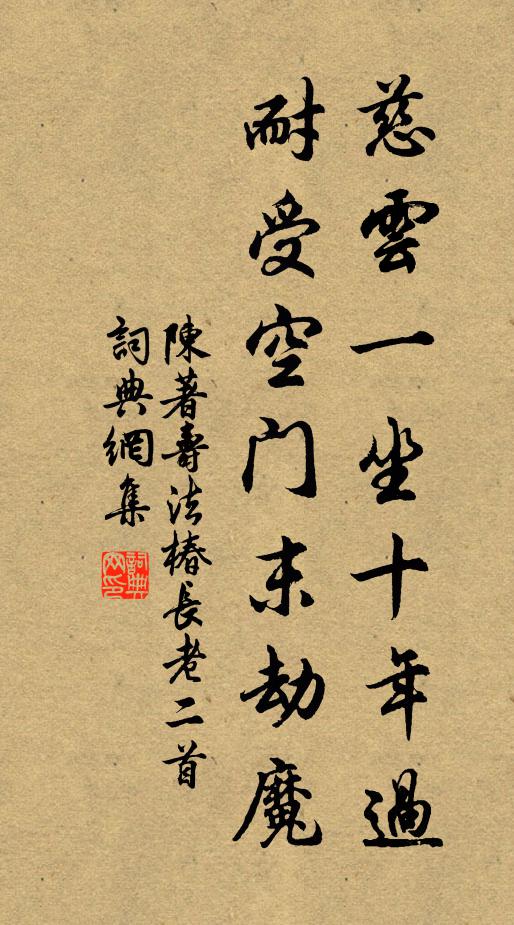 慈雲一坐十年過
耐受空門末劫魔
陳著壽法椿長老二首
詞典網集
詞典網印